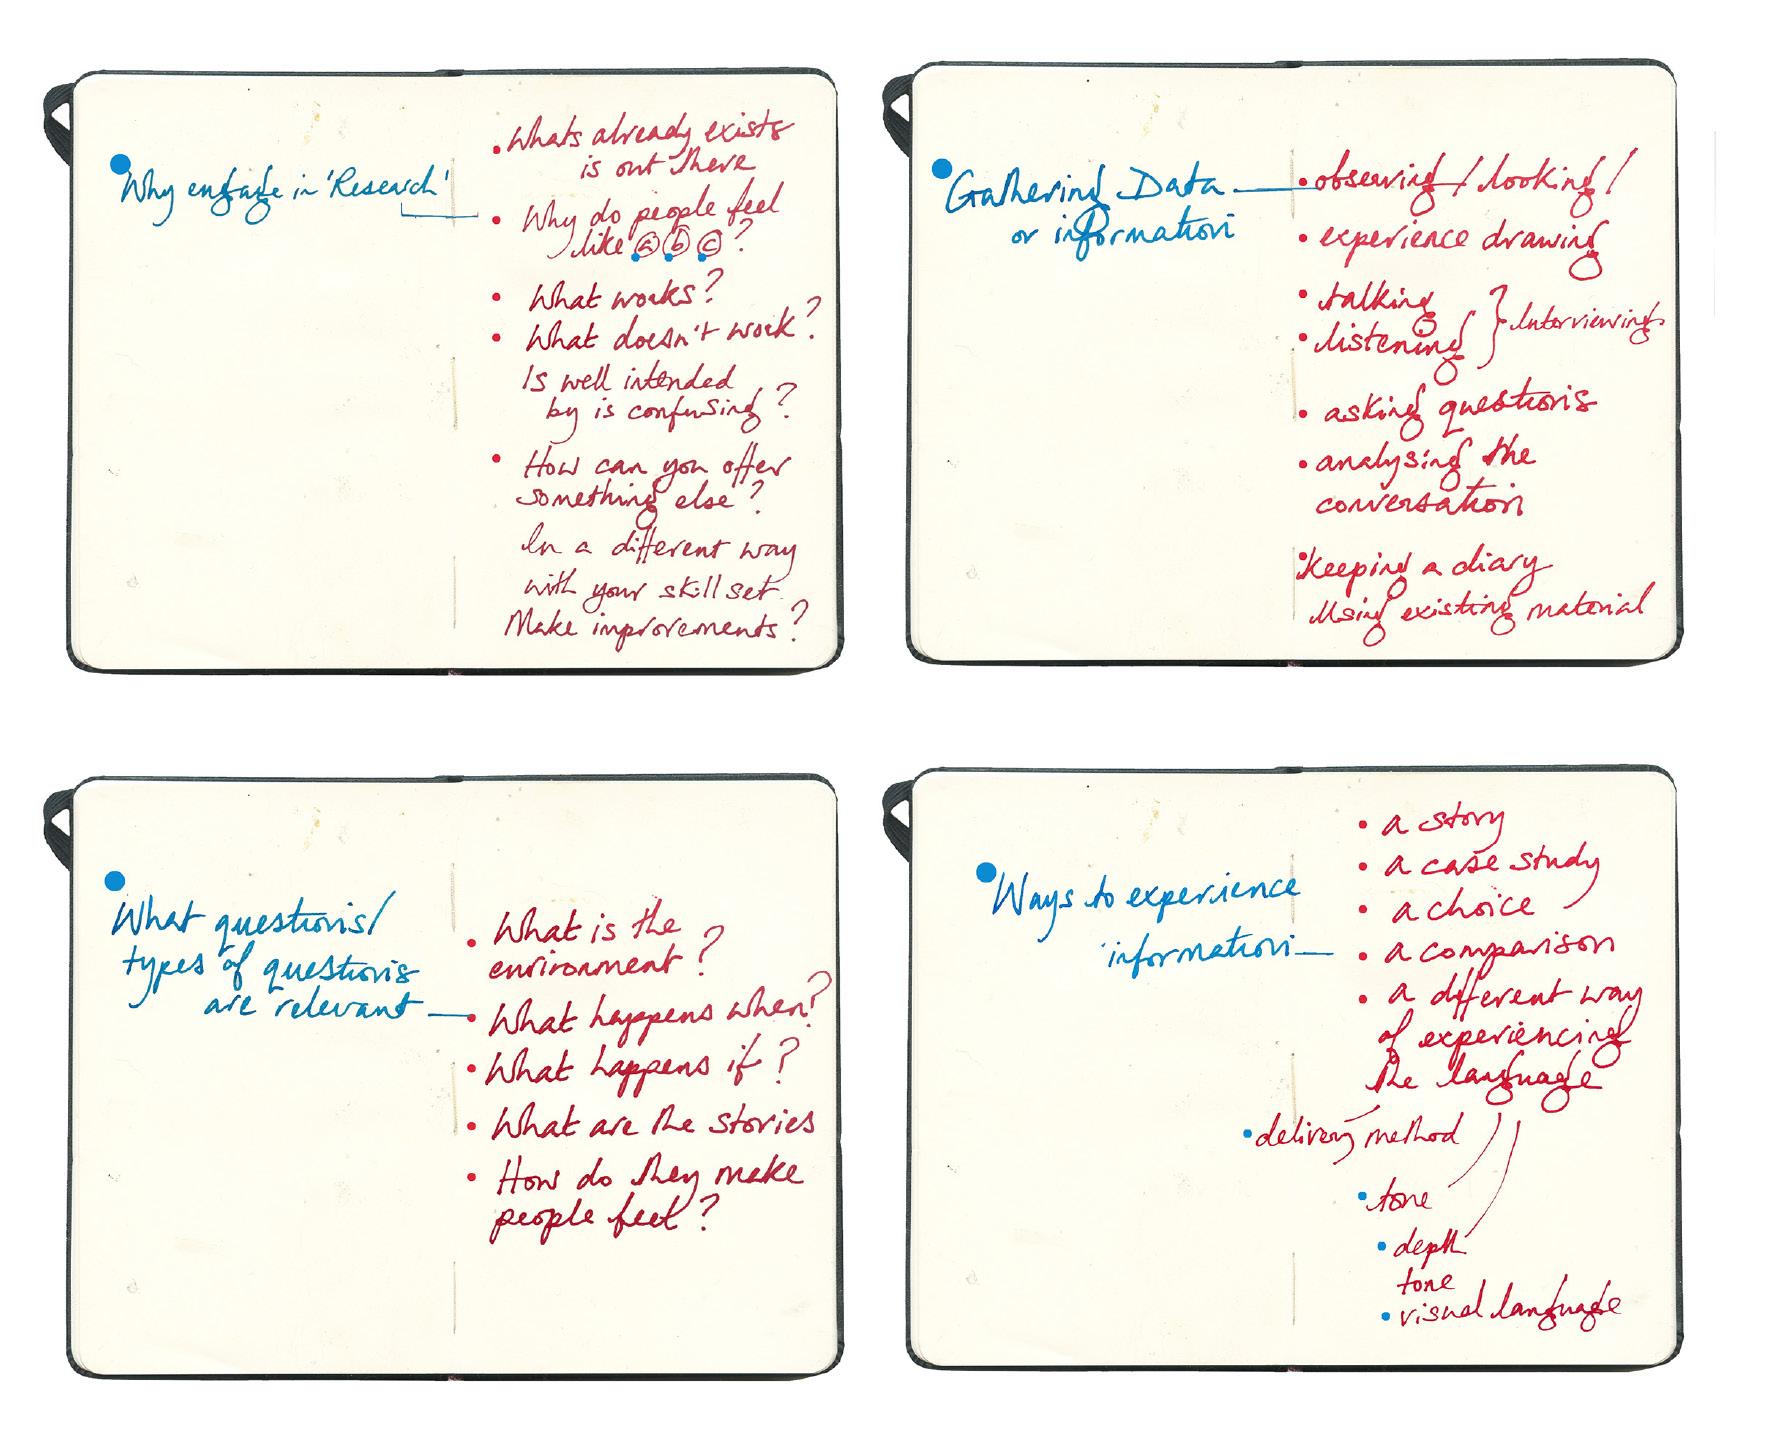 Why engage in 'Research'
Whats already exists
is out there
Why do people feel
like a b c ?
What works?
What doesn't work?
Is well intended
by is confusing?
How can you offer
something else?
In a different way
with your skillset
Make improvements?
Gathering Data
or information
observing / looking /
experience drawing
talking
listening } Interviewing
asking questions
analysing the
conversation
keeping a diary
Using existing material
What questions/
types of questions
are relevant
What is the
environment?
What happens when?
What happens if?
What are the stories
How do they make
people feel?
Ways to experience
information
a story
a case study
a choice
a comparison
a different way
of experiencing
the language
delivery method
tone
depth
tone
visual language